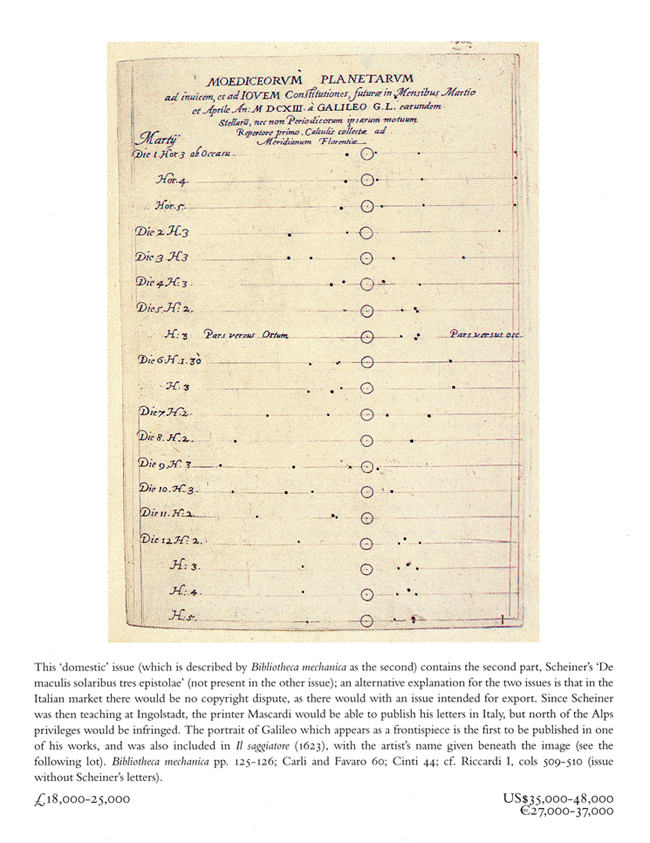 MOEDICEORVM PLANETARVM
ad inuicem, et ad IOVEM Constitutiones, futuræ in Mensibus Martio
et Aprile An: M DCXIII. à GALILEO G.L. earundem
Stellarū, nec non Periodicorum ipsarum motuum
Repertore primo. Calculis collectæ ad
Meridianum Florentiæ
Martij
Die 1. Hor. 3 ab Occasu.
Hor. 4.
Hor. 5.
Die 2. H. 3
Die 3. H. 3
Die 4. H: 3.
Die 5. H: 2.
H: 3 Pars versus Ortum Pars versus occ.
Die 6 H. 1. 30
H. 3
Die 7. H. 2.
Die 8. H. 2.
Die 9. H: 3
Die 10. H. 3.
Die 11. H: 2.
Die 12 H: 2.
H: 3.
H: 4
H: 5.
This ‘domestic’ issue (which is described by Bibliotheca mechanica as the second) contains the second part, Scheiner’s ‘De
maculis solaribus tres epistolae’ (not present in the other issue); an alternative explanation for the two issues is that in the
Italian market there would be no copyright dispute, as there would with an issue intended for export. Since Scheiner
was then teaching at Ingolstadt, the printer Mascardi would be able to publish his letters in Italy, but north of the Alps
privileges would be infringed. The portrait of Galileo which appears as a frontispiece is the first to be published in one
of his works, and was also included in Il saggiatore (1623), with the artist’s name given beneath the image (see the
following lot). Bibliotheca mechanica pp. 125–126; Carli and Favaro 60; Cinti 44; cf. Riccardi I, cols 509–510 (issue
without Scheiner’s letters).
£18,000–25,000 US$35,000–48,000
€27,000–37,000